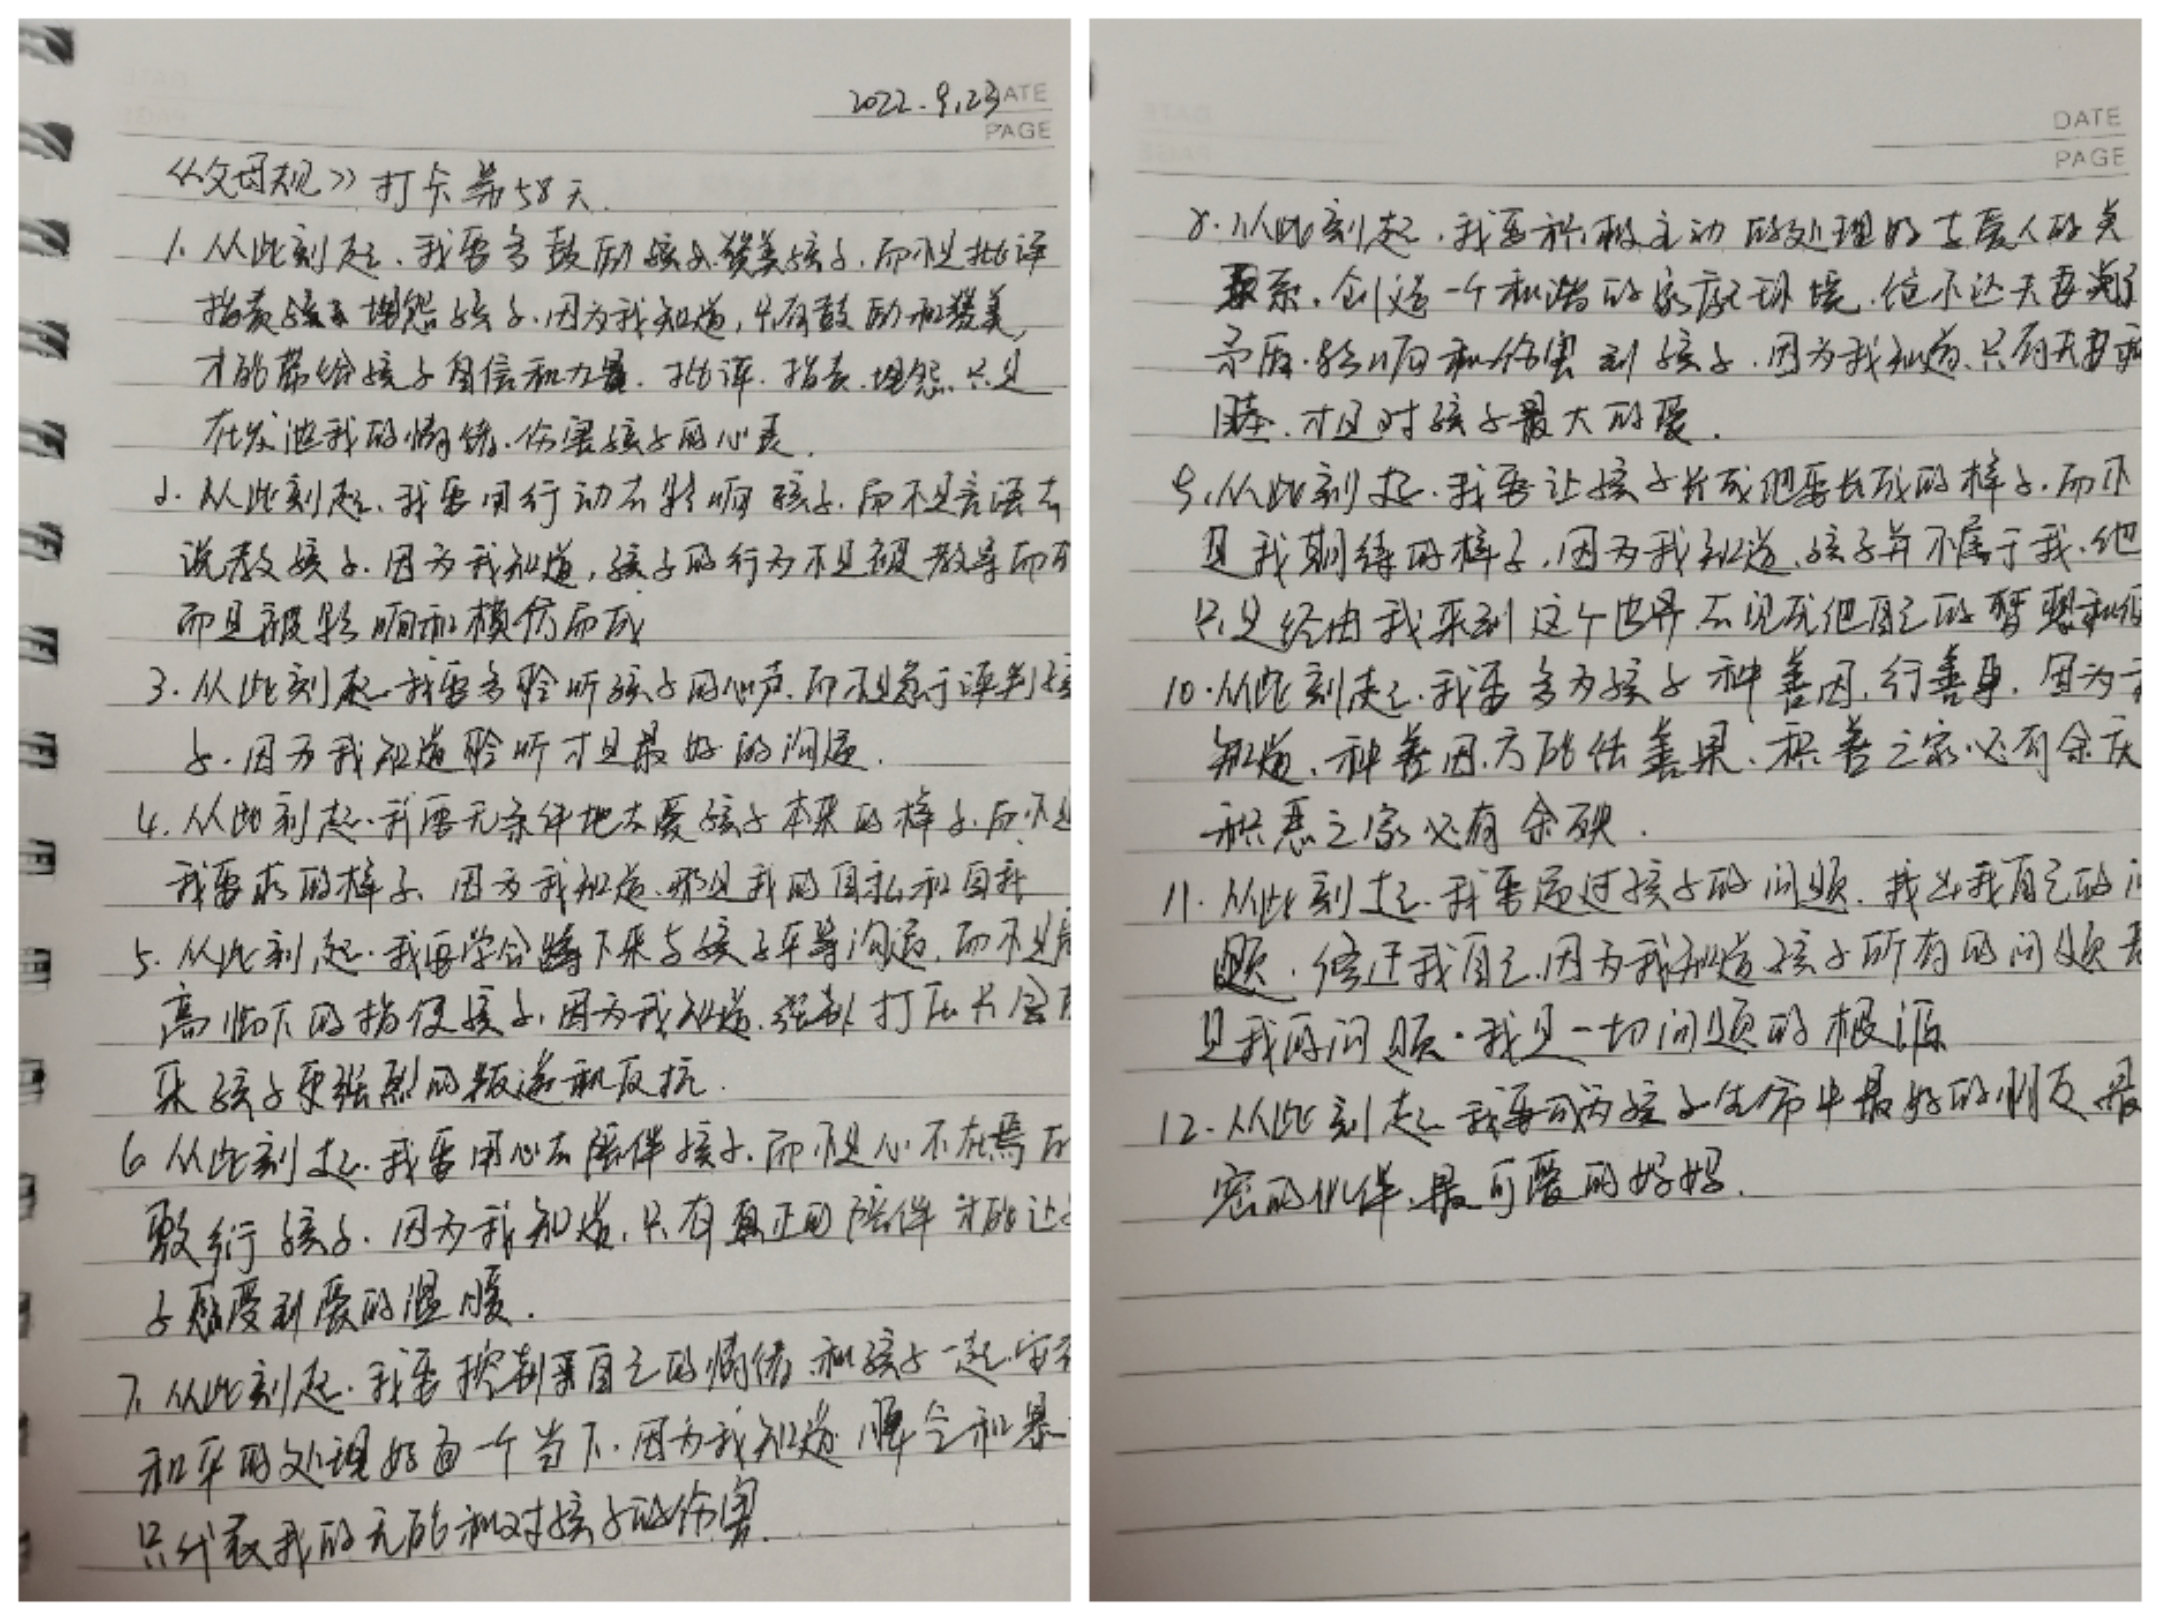 2022.9.23
DATE
PAGE
《父母规》打卡第58天.
1. 从此刻起.我要多鼓励孩子.赞美孩子.而不是批评
指责孩子埋怨孩子.因为我知道,只有鼓励和赞美,
才能带给孩子自信和力量.批评.指责.埋怨.只是
在发泄我的情绪.伤害孩子的心灵.
2. 从此刻起.我要用行动去影响孩子.而不是言语去
说教孩子.因为我知道,孩子的行为不是被教导而
而是被影响和模仿而成
3. 从此刻起.我要多聆听孩子的心声.而不是急于评判孩
子.因为我知道聆听才是最好的沟通.
4. 从此刻起.我要无条件地去爱孩子本来的样子.而不是
我要求的样子、因为我知道.那是我的自私和自我
5. 从此刻起.我要学会蹲下来与孩子平等沟通.而不是居
高临下的指使孩子.因为我知道.强制打压只会
来孩子更强烈的叛逆和反抗.
6 从此刻起.我要用心去陪伴孩子.而不是心不在焉
敷衍孩子.因为我知道.只有真正的陪伴才能让
子感受到爱的温暖.
7. 从此刻起.我要控制自己的情绪.和孩子一起.安
和平的处理好每一个当下.因为我知道 脾气和暴
只代表我的无能和对孩子的伤害.
DATE
PAGE
8. 从此刻起.我要积极主动的处理好与爱人的关
系.创造一个和谐的家庭环境.绝不让夫妻
矛盾.影响和伤害到孩子.因为我知道.只有夫妻和
睦.才是对孩子最大的爱.
9. 从此刻起.我要让孩子长成他要长成的样子.而不
是我期待的样子.因为我知道.孩子并不属于我.他
只是经由我来到这个世界去完成他自己的梦想和
10.从此刻起.我要多为孩子种善因.行善事.因为
知道.种善因.方能结善果.积善之家.必有余庆
积恶之家必有余殃.
11. 从此刻起.我要通过孩子的问题.找出我自己的
题.修正我自己.因为我知道孩子所有的问题
是我的问题.我是一切问题的根源
12. 从此刻起.我要成为孩子生命中最好的朋友最
密的伙伴.最可爱的妈妈.